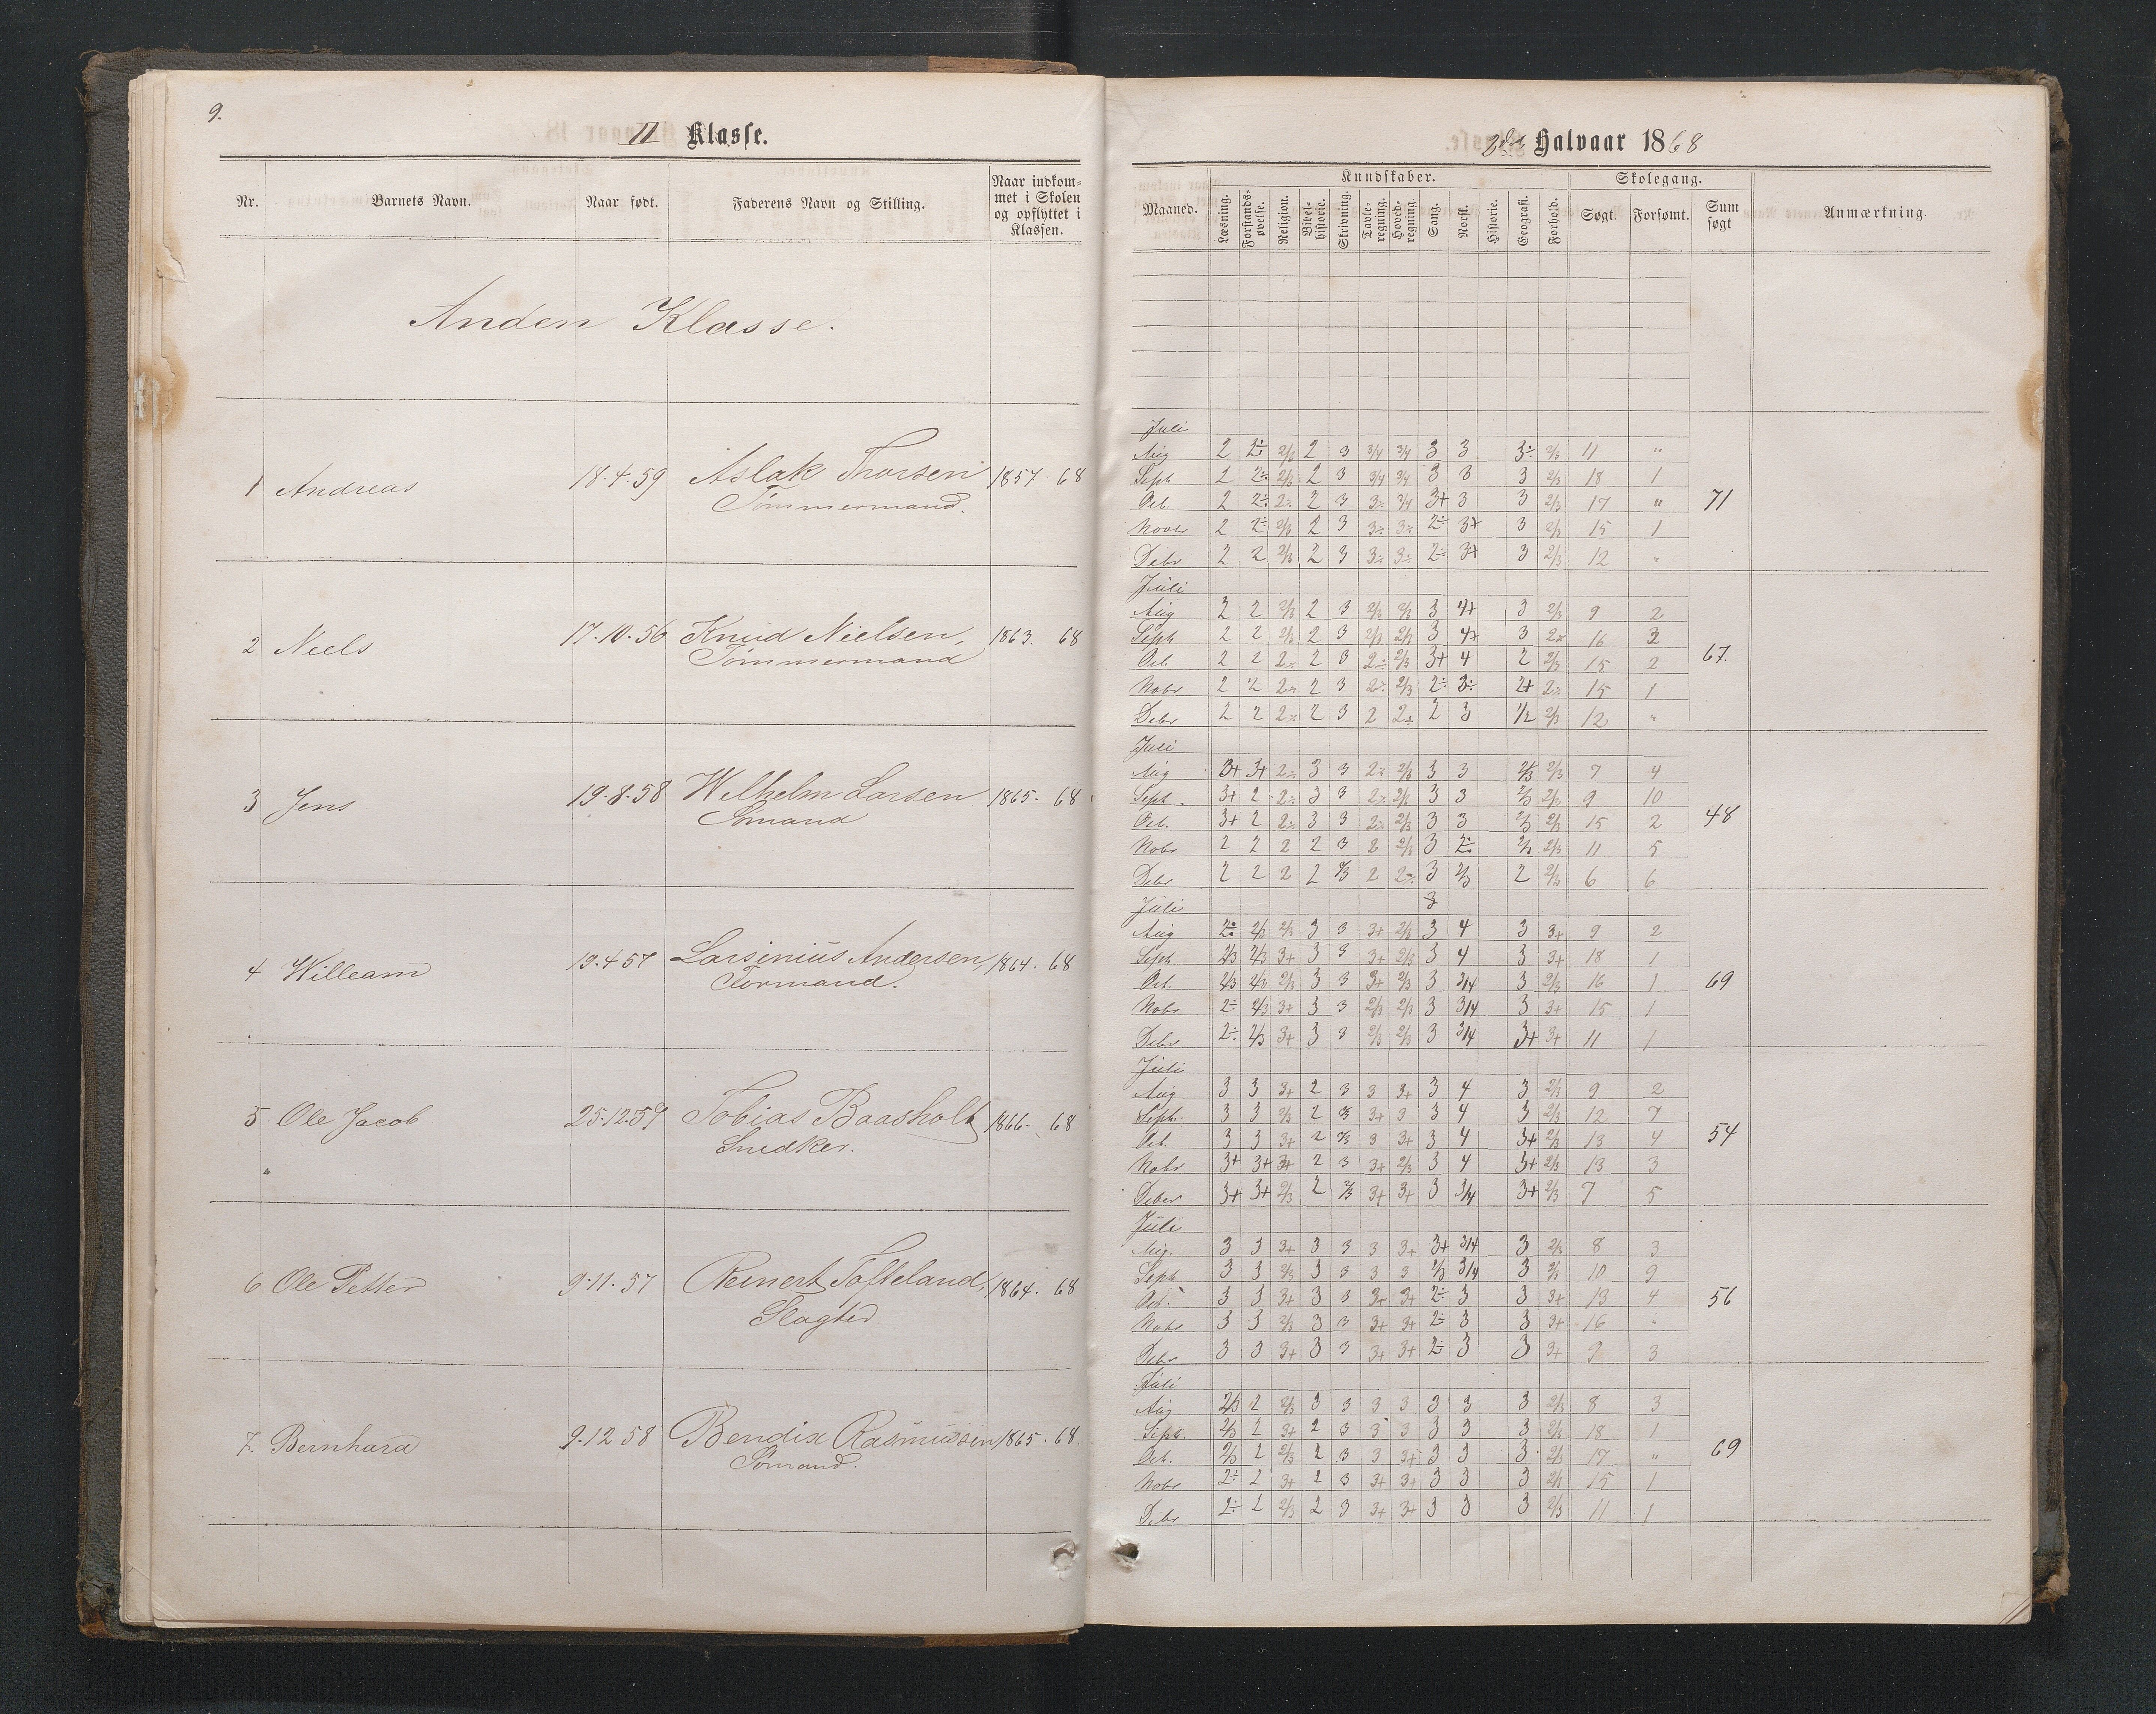 9.
II Klasse.
Nr. Barnets Navn. Naar født. Faderens Navn og Stilling. Naar indkom=
met i Skolen
og opflyttet i
Klassen.
Anden Klasse.
1 Andreas 18.4.59 Aslak Thorsen 1857 68
Tømmermand.
2 Niels 17.10.56 Knud Nielsen, 1863. 68
Tømmermand
3 Jens 19.8.58 Wilhelm Larsen 1865. 68
Sømand
4 Willeam 19.4 57 Larsinius Andersen, 1864. 68
Formand.
5 Ole Jacob 25.12.59 Tobias Baasholt 1866. 68
Snedker.
6 Ole Petter 9.11.57 Reinert Tofteland, 1864. 68
Slagter.
7. Bernhard 9.12 58 Bendix Rasmussen 1865. 68.
Sømand.
2det Halvaar 1868
Kundskaber. Skolegang.
Maaned. Læsning. Forstands-
øvelse. Religion. Bibel-
historie. Skrivning. Tavle-
regning. Hoved-
regning. Sang. Norsk. Historie. Geografi. Forhold. Søgt. Forsømt. Sum
søgt Anmærkning.
Juli
Aug 2 2÷ 2/3 2 3 3/4 3/4 3 3 3÷ 2/3 11 "
Sept 2 2÷ 2/3 2 3 3/4 3/4 3 3 3 2/3 18 1
Oct. 2 2÷ 2÷ 2 3 3÷ 3/4 3+ 3 3 2/3 17 " 71
Novbr 2 2÷ 2/3 2 3 3÷ 3÷ 2÷ 3+ 3 2/3 15 1
Debr 2 2 2/3 2 3 3÷ 3÷ 2÷ 3+ 3 2/3 12 "
Juli
Aug 2 2 2/3 2 3 2/3 2/3 3 4+ 3 2/3 9 2
Sept 2 2 2/3 2 3 2/3 2/3 3 4+ 3 2÷ 16 3
Oct. 2 2 2÷ 2 3 2÷ 2/3 3+ 4 2 2/3 15 2 67.
Nobr 2 2 2÷ 2 3 2÷ 2/3 2÷ 3÷ 2+ 2÷ 15 1
Debr 2 2 2÷ 2 3 2 2+ 2 3 1/2 2/3 12 "
Juli
Aug 3+ 3+ 2÷ 3 3 2÷ 2/3 3 3 2/3 2/3 7 4
Sept. 3+ 2 2÷ 3 3 2÷ 2/3 3 3 2/3 2/3 9 10
Oct. 3+ 2 2÷ 3 3 2÷ 2/3 3 3 2/3 2/3 15 2 48
Nobr 2 2 2 2 3 2 2/3 3 2÷ 2/3 2/3 11 5
Debr 2 2 2 2 2/3 2 2÷ 3 2/3 2 2/3 6 6
Juli 3
Aug 2÷ 2/3 2/3 3 3 3+ 2/3 3 4 3 3+ 9 2
Sept 2/3 2/3 3+ 3 3 3+ 2/3 3 4 3 3+ 18 1
Oct. 2/3 2/3 2/3 3 3 3+ 2/3 3 3/4 3 2/3 16 1 69
Nobr 2÷ 2/3 3+ 3 3 2/3 2/3 3 3/4 3 3+ 15 1
Debr 2÷ 2/3 3+ 3 3 2/3 2/3 3 3/4 3+ 3+ 11 1
Juli
Aug 3 3 3+ 2 3 3 3+ 3 4 3 2/3 9 2
Sept. 3 3 2/3 2 2/3 3+ 3 3 4 3 2/3 12 7
Oct 3 3 3+ 2 2/3 3 3+ 3 4 3+ 2/3 13 4 54
Nobr 3+ 3+ 3+ 2 3 3+ 2/3 3 4 3+ 2/3 13 3
Debr 3+ 3+ 2/3 2 2/3 3+ 3+ 3 3/4 3+ 2/3 7 5
Juli
Aug. 3 3 3+ 3 3 3 3+ 3+ 3/4 3 2/3 8 3
Sept 3 3 2/3 3 3 3 3 2/3 3/4 3 2/3 10 9
Oct. 3 3 3+ 3 3 3+ 3+ 2÷ 3 3 3+ 13 4 56
Nobr 3 3 2/3 3 3 3+ 3+ 2÷ 3 3 3+ 16 "
Debr 3 3 3+ 3 3 3+ 3+ 2÷ 3 3 3+ 9 3
Juli
Aug 2/3 2 2/3 3 3 3 3 3 3 3 2/3 8 3
Sept. 2/3 2 3+ 2 3 3 3 3 3 3 2/3 18 1
Oct. 2/3 2 2/3 2 3 3 3+ 3 3 3 2/3 17 " 69
Nobr 2÷ 2 3+ 2 3 3+ 3+ 3 3 3 2/3 15 1
Debr 2÷ 2 2/3 2 3 3+ 3+ 3 3 3 2/3 11 1